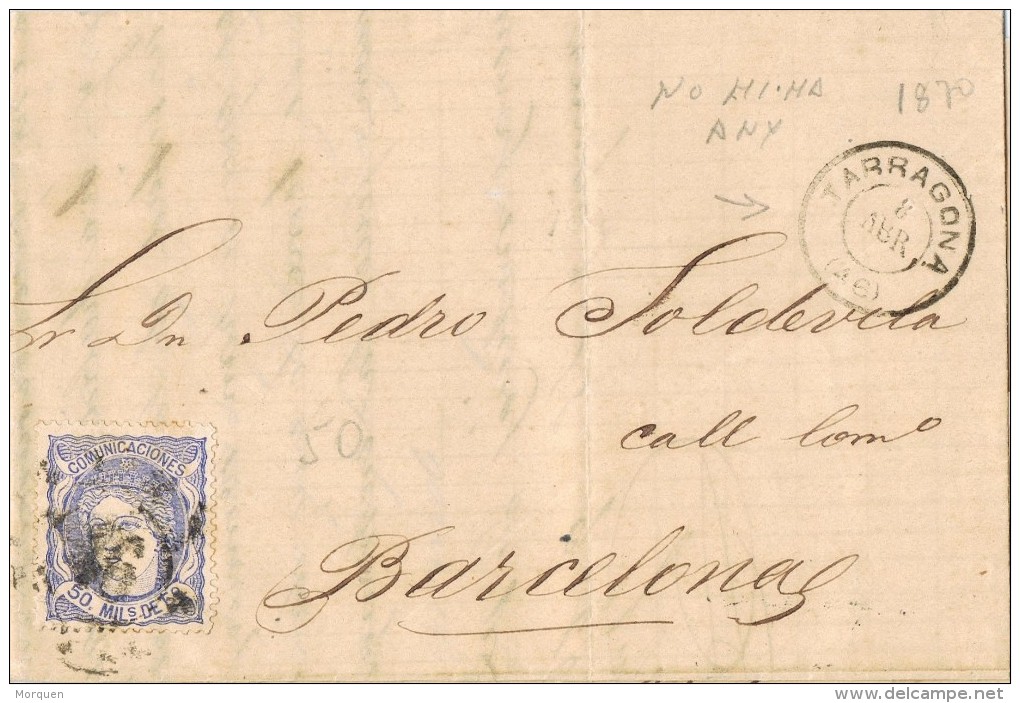 NO HI·HA
ANY
1870
TARRAGONA
8
ABR
(46)
Sr Dn Pedro Soldevila
call Comº
50
Barcelona
COMUNICACIONES
50, MILS DE Eº
Morquen
delcampe.net